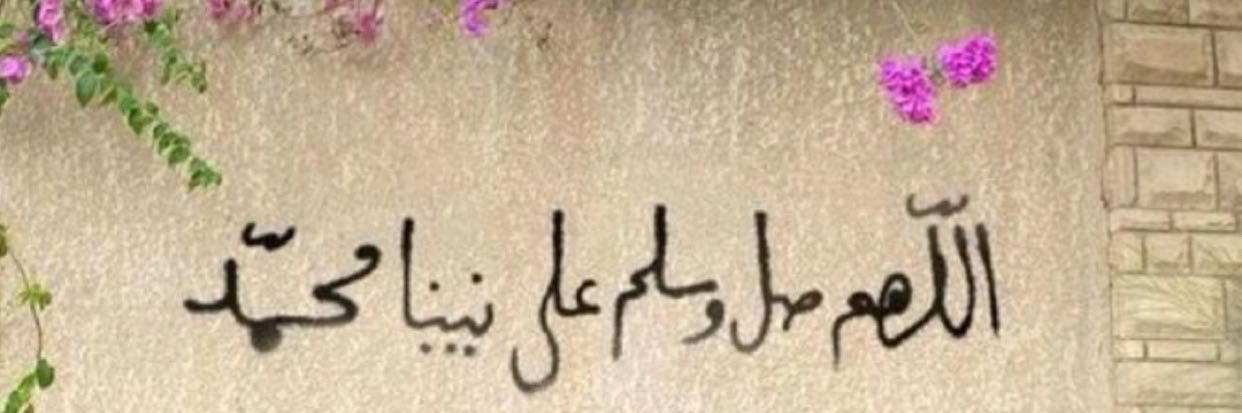 اللّهم صل وسلم على نبينا محمّد